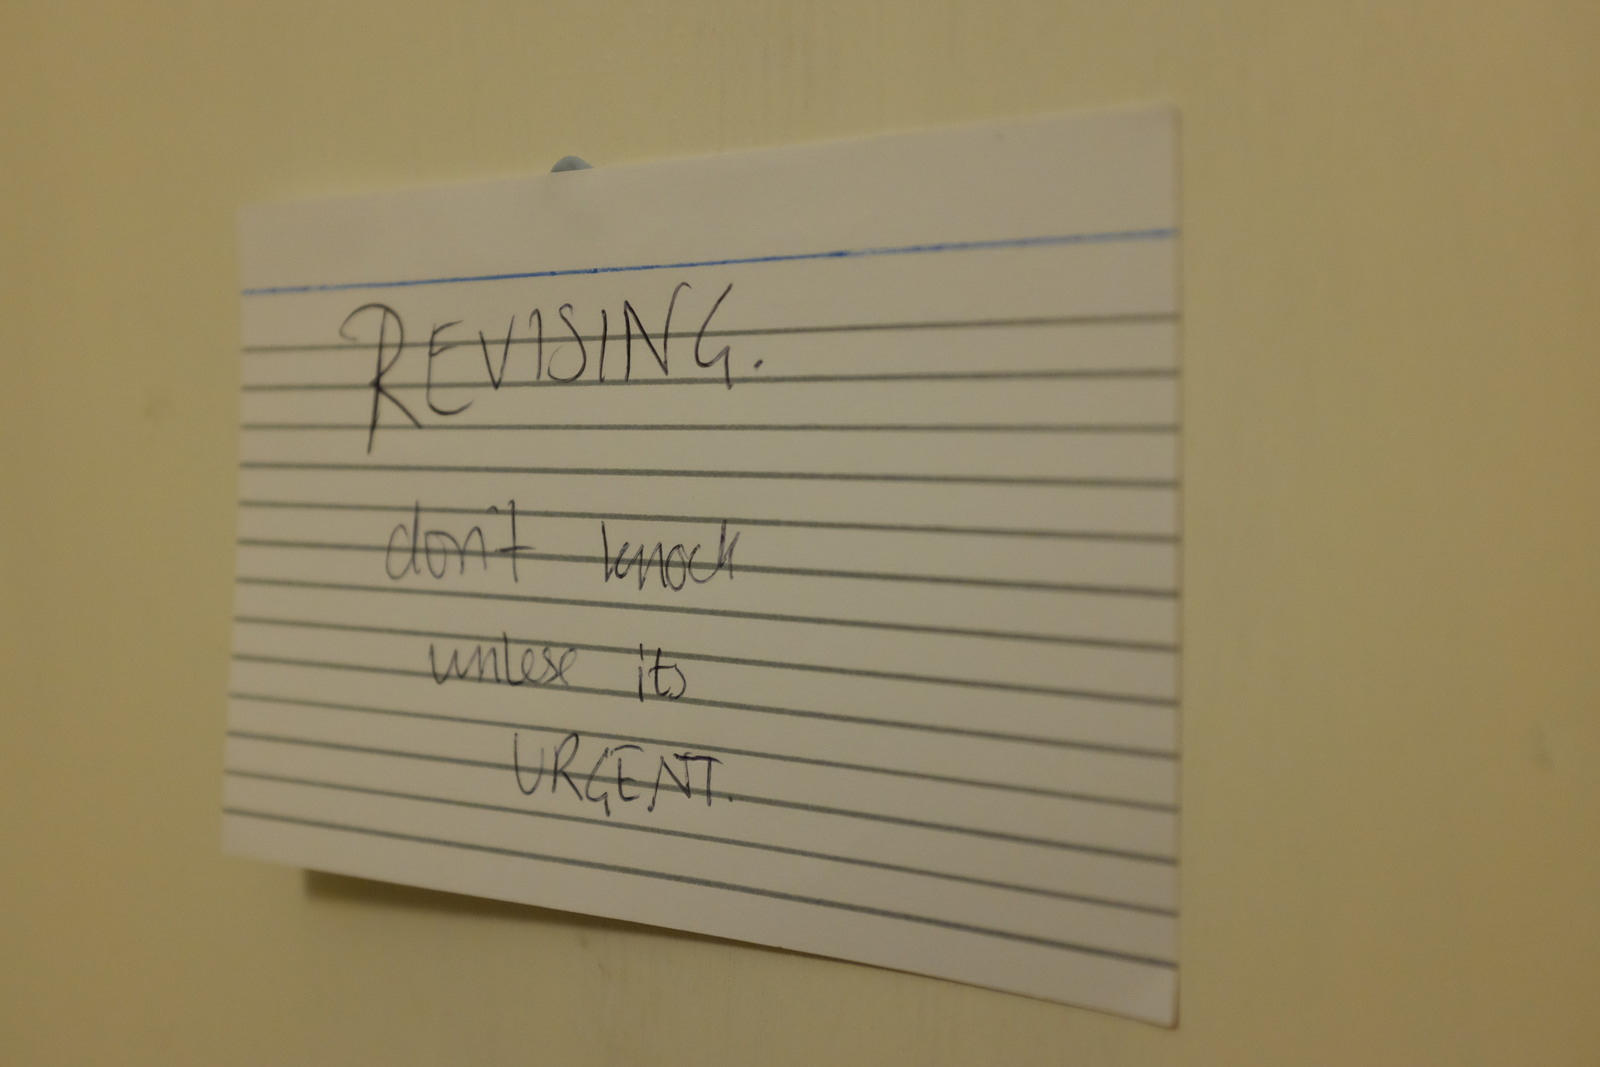 REVISING.
don't knock
unless its
URGENT.